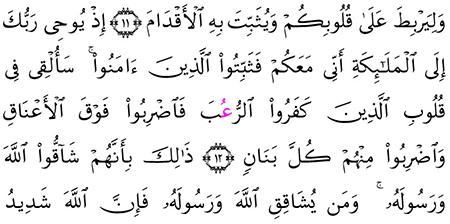 وَلِيَرْبِطَ عَلَىٰ قُلُوبِكُمْ وَيُثَبِّتَ بِهِ ٱلْأَقْدَامَ ۝١١ إِذْ يُوحِى رَبُّكَ
إِلَى ٱلْمَلَـٰٓئِكَةِ أَنِّى مَعَكُمْ فَثَبِّتُوا۟ ٱلَّذِينَ ءَامَنُوا۟ ۚ سَأُلْقِى فِى
قُلُوبِ ٱلَّذِينَ كَفَرُوا۟ ٱلرُّعُبَ فَٱضْرِبُوا۟ فَوْقَ ٱلْأَعْنَاقِ
وَٱضْرِبُوا۟ مِنْهُمْ كُلَّ بَنَانٍ ۝١٢ ذَٰلِكَ بِأَنَّهُمْ شَآقُّوا۟ ٱللَّهَ
وَرَسُولَهُۥ ۚ وَمَن يُشَاقِقِ ٱللَّهَ وَرَسُولَهُۥ فَإِنَّ ٱللَّهَ شَدِيدُ